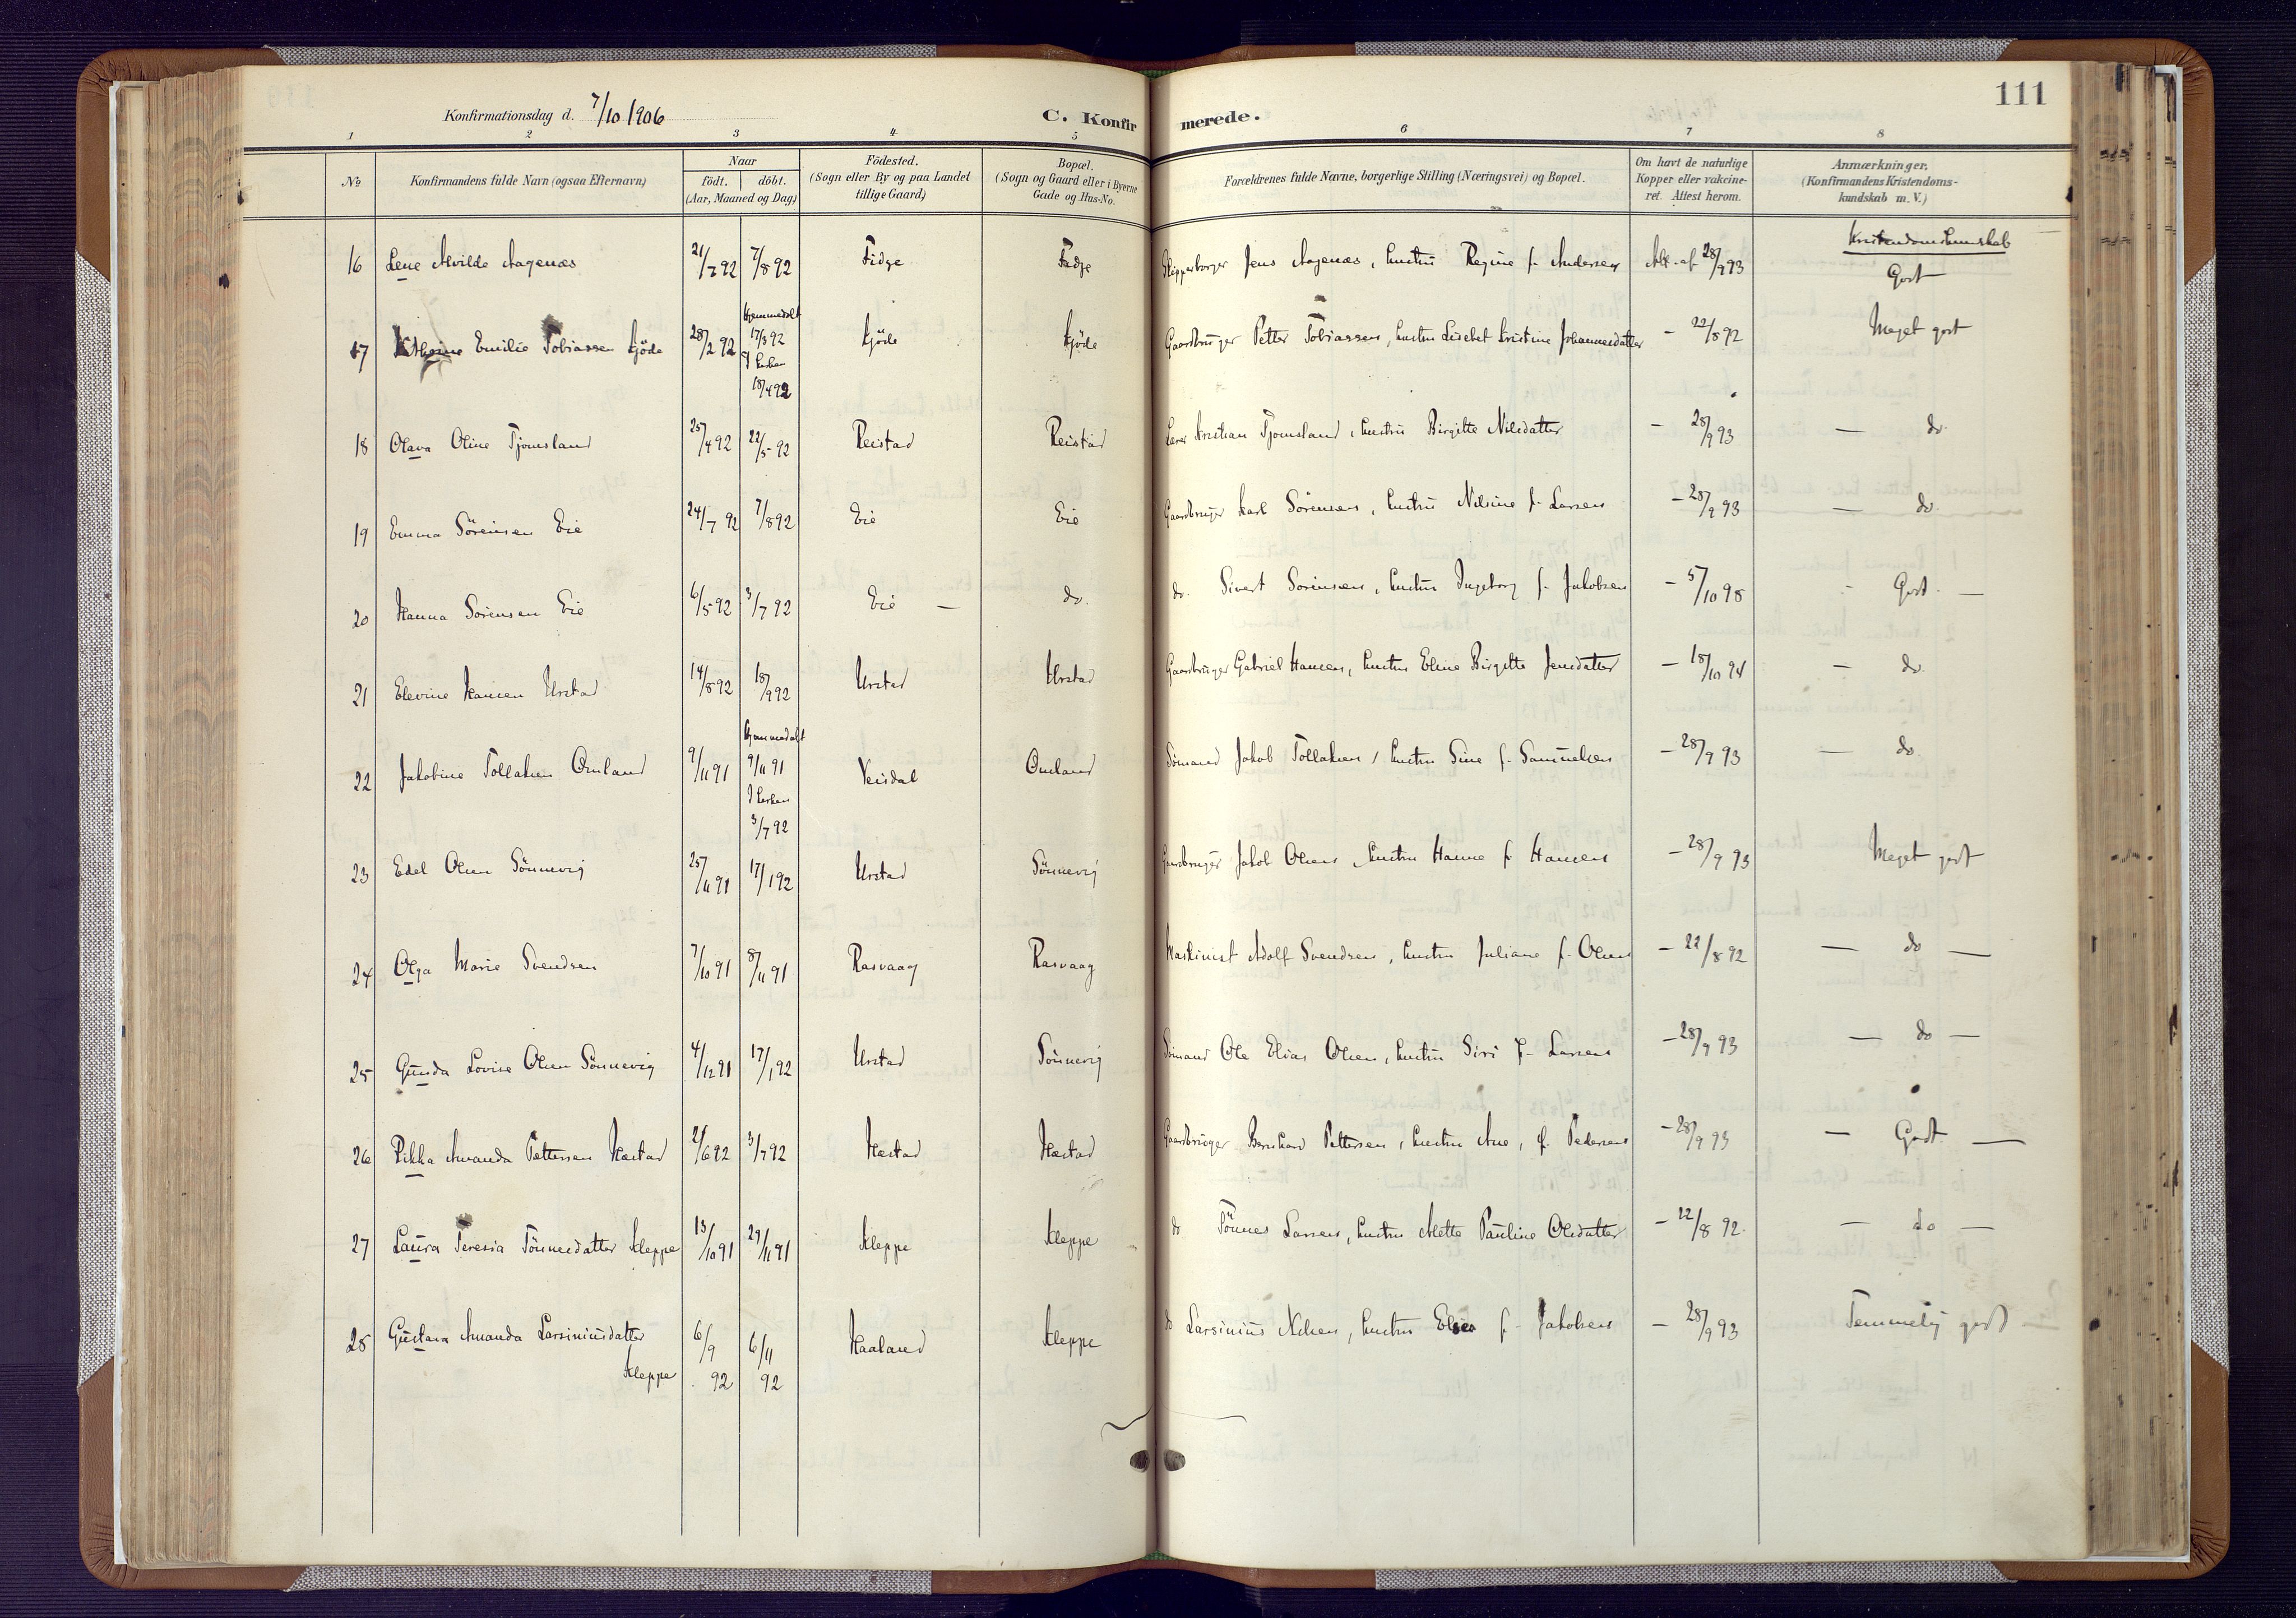 111
Konfirmationsdag d. 7/10 1906
C. Konfirmerede.
1 2 3 4 5 6 7 8
No
Konfirmandens fulde Navn (ogsaa Efternavn)
Naar
födt. döbt.
(Aar, Maaned og Dag)
Födested.
(Sogn eller By og paa Landet
tillige Gaard)
Bopæl.
(Sogn og Gaard eller i Byerne
Gade og Hus-No.
Forældrenes fulde Navne, borgerlige Stilling (Næringsvei) og Bopæl.
Om havt de naturlige
Kopper eller vakcine-
ret. Attest herom.
Anmærkninger,
(Konfirmandens Kristendoms-
kundskab m. V.)
Kristendomskunskab
16 Lene Alvilde Aagenæs 21/7 92 7/8 92 Fidje Fidje Skipperborger Jens Aagenæs, hustru Regine f. Andersen Att. af 28/9 93 Godt
17 Emilie Tobiassen Kjöde 28/2 92 Hjemmedöbt 17/3 92 I kirken 18/4 92 Kjöde Kjöde Gaardbruger Petter Tobiassen, hustru Lisebet Kristine Johannesdatter – 22/8 92 Meget godt
18 Olava Oline Tjomsland 25/4 92 22/5 92 Reistad Reistad Lærer Kristian Tjomsland, hustru Birgitte Nilsdatter – 28/9 93 — do.
19 Emma Sörensen Eie 24/7 92 7/8 92 Eie Eie Gaardbruger Karl Sörensen, hustru Nilsine f. Larsen – 28/9 93 — do.
20 Hanna Sörensen Eie 6/5 92 3/7 92 Eie — do. do. Sivert Sörensen, hustru Ingeborg f. Jakobsen – 5/10 98 – Godt. —
21 Elevine Hansen Urstad 14/8 92 18/9 92 Urstad Urstad Gaardbruger Gabriel Hansen, hustru Eline Birgitte Jensdatter – 18/10 94 – do.
22 Jakobine Tollaksen Omland 9/11 91 Hjemmedöbt 9/11 91 I kirken 3/7 92 Veisdal Omland Sömand Jakob Tollaksen, hustru Sine f. Samuelsen – 28/9 93 — do.
23 Edel Olsen Sönnevig 25/11 91 17/1 92 Urstad Sönnevig Gaardbruger Jakob Olsen, hustru Hanne f. Hansen – 28/9 93 Meget godt
24 Olga Marie Svendsen 7/10 91 8/11 91 Rasvaag Rasvaag Maskinist Adolf Svendsen, hustru Juliane f. Olsen – 22/8 92 — do —
25 Gunda Lovise Olsen Sönnevig 4/12 91 17/1 92 Urstad Sönnevig Sömand Ole Elias Olsen, hustru Siri f. Larsen – 28/9 93 — do —
26 Rikka Amanda Pettersen Hæstad 2/6 92 3/7 92 Hæstad Hæstad Gaardbruger Bernhard Pettersen, hustru Ane, f. Pedersen – 28/9 93 – Godt. —
27 Laura Teresia Tönnesdatter Kleppe 13/10 91 29/11 91 Kleppe Kleppe do Tönnes Larsen, hustru Mette Pauline Olsdatter – 22/8 92. — do —
28 Gustava Amanda Larsiniusdatter 6/9 92 6/11 92 Haaland Kleppe do Larsinius Nilsen, hustru f. Jakobsen – 28/9 93 Temmelig godt —
Kleppe